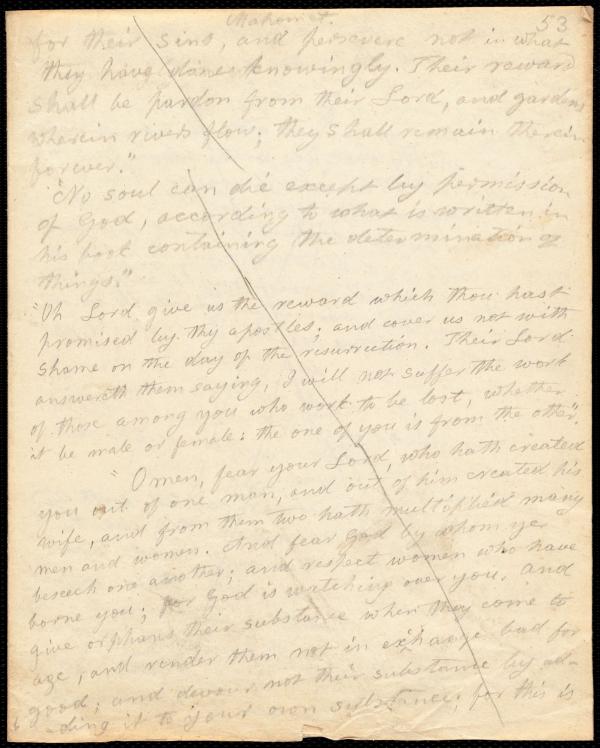 Mahomet.
53
for their sins, and persevere not in what
they have done knowingly. Their reward
shall be pardon from their Lord, and gardens
wherein rivers flow; they shall remain therein
forever."
"No soul can die except by permission
of God, according to what is written in
his book containing the determination of
things."
"Oh Lord give us the reward which thou hast
promised by thy apostles; and cover us not with
shame on the day of the resurrection. Their Lord
answereth them saying, I will not suffer the work
of those among you who work to be lost, whether
it be male or female: the one of you is from the other."
"O men, fear your Lord, who hath created
you out of one man, and out of him created his
wife, and from them two hath multiplied many
men and women. And fear God by whom ye
beseech one another; and respect women who have
borne you; for God is watching over you. And
give orphans their substance when they come to
age; and render them not in exchange bad for
good; and devour not their substance by ad-
ding it to your own substance; for this is